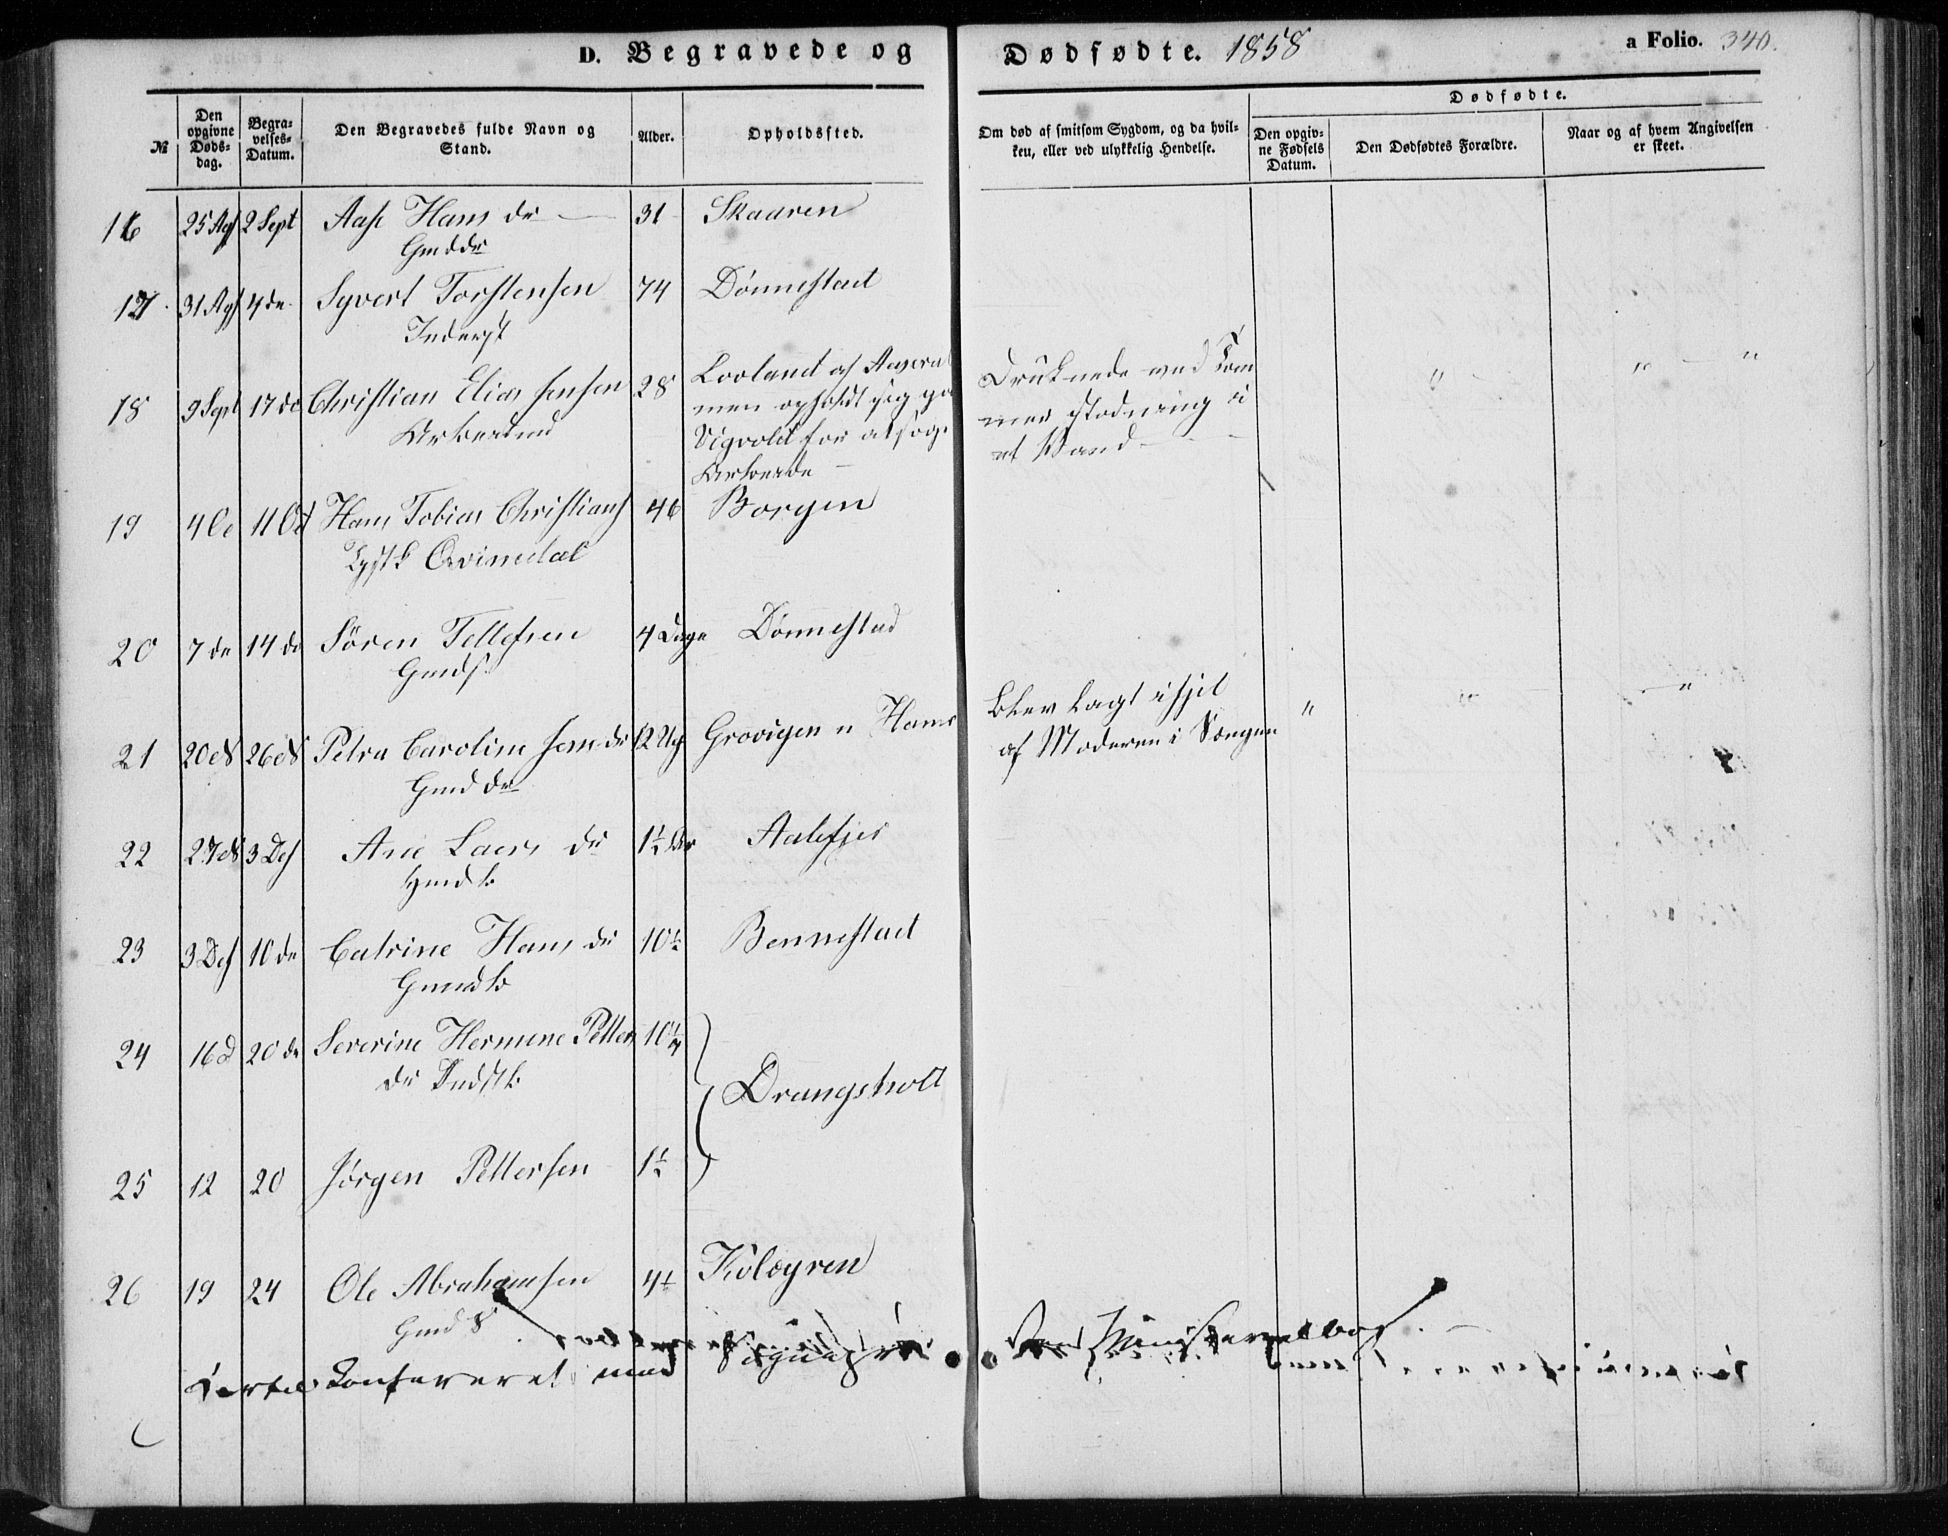 D. Begravede og Dødfødte. 1858 a Folio. 340.
№
Den opgivne Døds-dag.
Begra-velses-Datum.
Den Begravedes fulde Navn og Stand.
Alder.
Opholdssted.
Om død af smitsom Sygdom, og da hvil-ken, eller ved ulykkelig Hendelse.
Dødfødte.
Den opgiv-ne Fødsels Datum.
Den Dødfødtes Forældre.
Naar og af hvem Angivelsen er skeet.
16 25 Ag 2 Sept Aase Hans dr 31 Skaaren
Gmd dr
17 31 Ag 4 do Syvert Torstensen 74 Dønnestad
Inderst
18 9 Sept 17 do Christian Elias Jensen 28 Lovland af Aaseral
men opholdt sig paa
Vigvold for at søge
Arbeide
Druknede ved Tøm
mer flødning i
et Vand
" " "
19 4 Oc 11 Oct Hans Tobias Christians 46 Borgen
Qvinedal
20 7 do 14 do Sören Tellefsen 4 Dage Dönnestad
Gmds
21 20 26 Petra Caroline Jens dr 12 Ug Grovigen
Gmd dr
Blev lagt ihjel
af Moderen i Sængen
" " "
22 27 3 De Ane Laers dr 1½ Aalefjær
23 3 De 10 do Catrine Hans dr 10½ Bennestad
24 16 d 20 do Severine Hermine Petter 10¼
dr
Drangsholt
25 12 20 Jörgen Pettersen 1½
26 19 24 Ole Abrahamsen 4½
Gmd S
Konfereret med